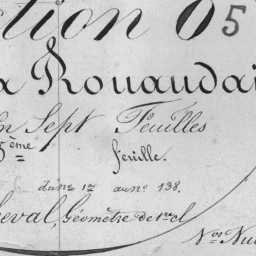 ction O 5
a Rouaudai
en Sept Feuilles
5ème feuille.
du no 1er au no 138.
cheval, Géomètre de 1re cl
Nos Nu